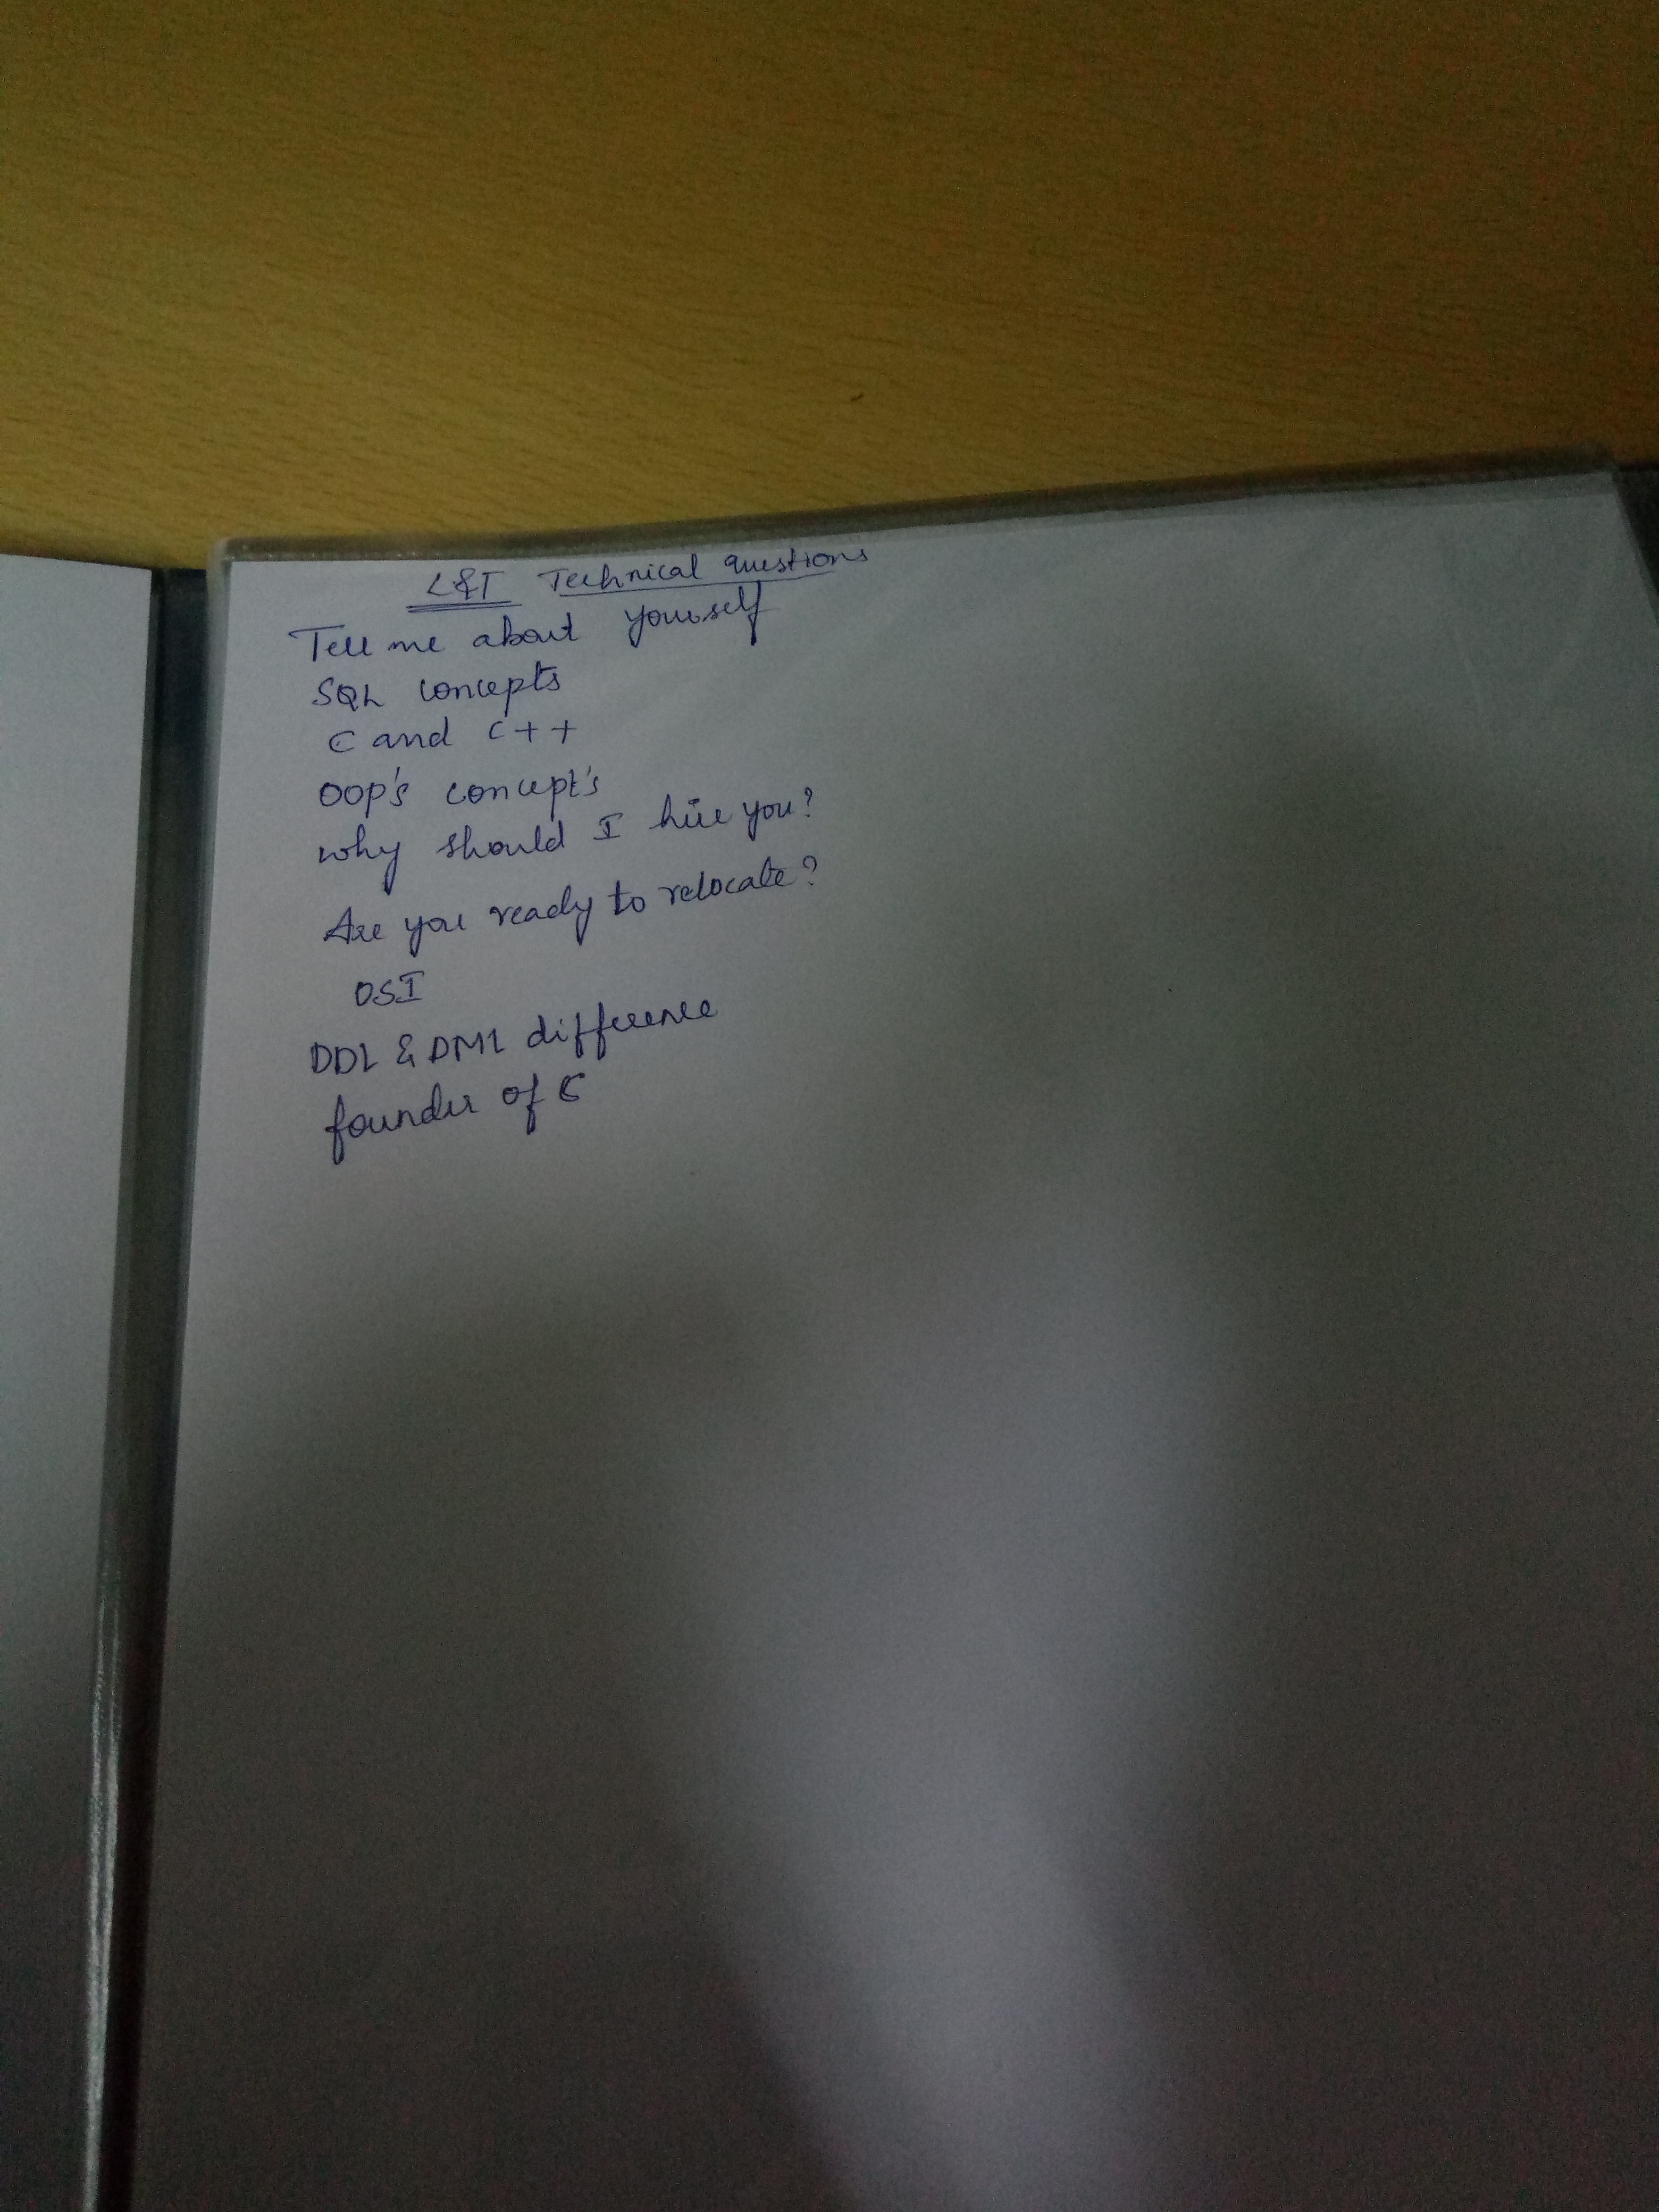 L&T Technical questions
Tell me about yourself
SQL concepts
C and C++
OOP's concept's
why should I hire you?
Are you ready to relocate?
OSI
DDL & DML difference
founder of C